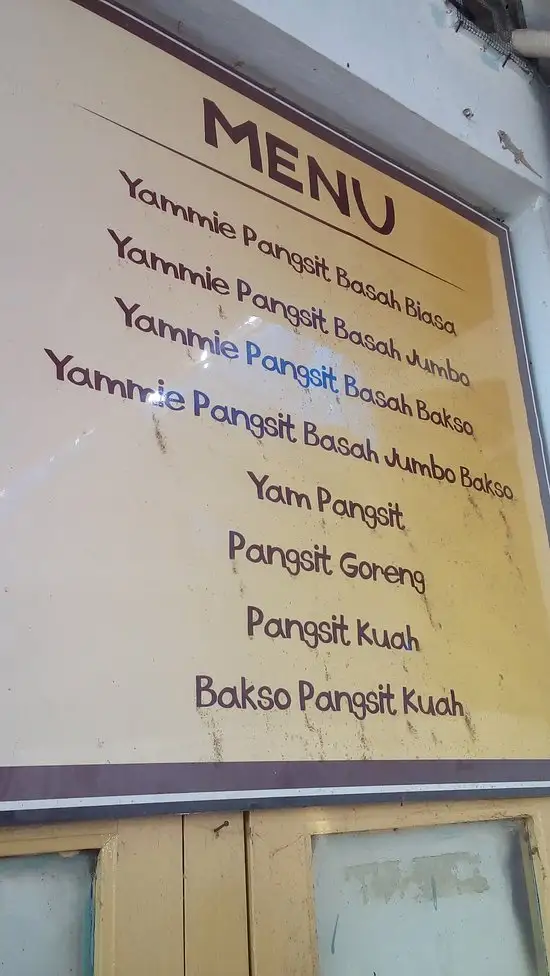 MENU
Yammie Pangsit Basah Biasa
Yammie Pangsit Basah Jumbo
Yammie Pangsit Basah Bakso
Yammie Pangsit Basah Jumbo Bakso
Yam Pangsit
Pangsit Goreng
Pangsit Kuah
Bakso Pangsit Kuah